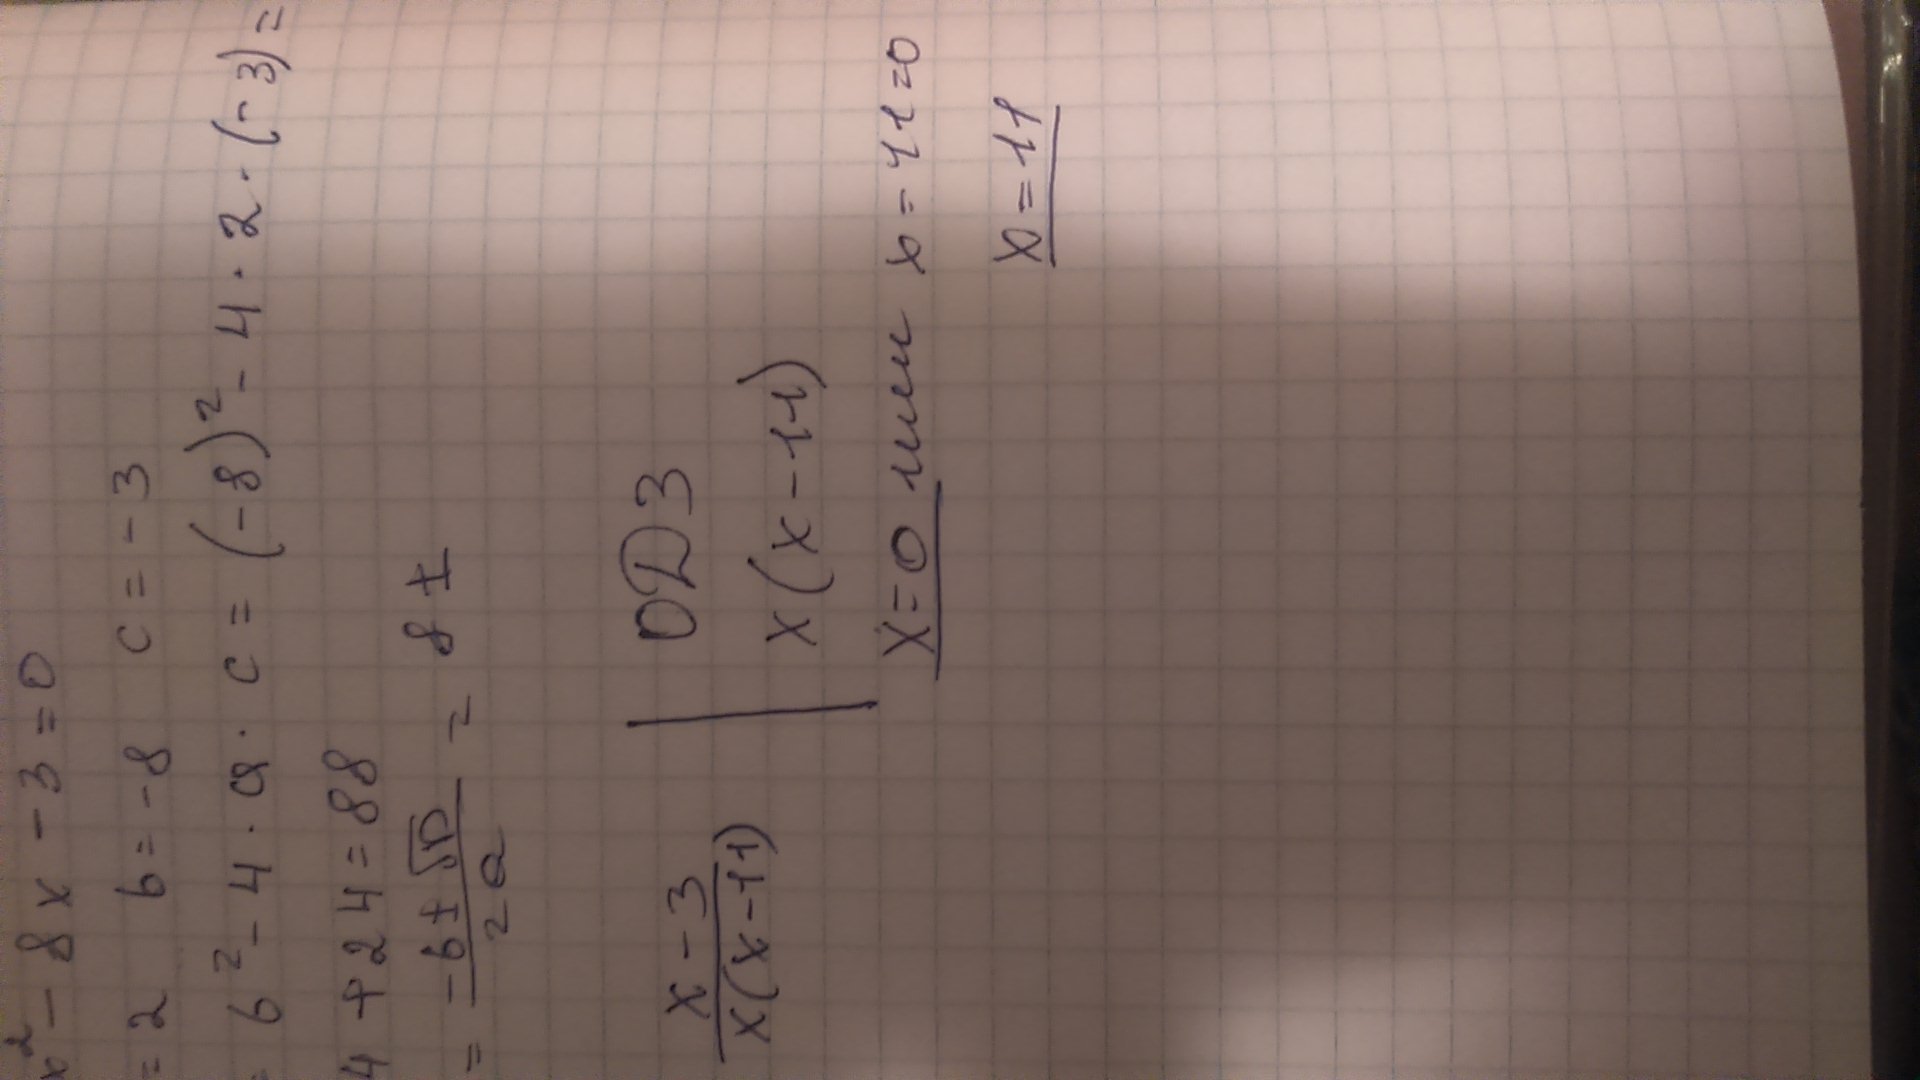 x² - 8x - 3 = 0
= 2 b = -8 c = -3
= b² - 4 · a · c = (-8)² - 4 · 2 · (-3) =
4 + 24 = 88
= -b ± √D = 8 ±
2a
x - 3
x(x-11)
ОДЗ
x(x-11)
x=0 или x-11=0
x=11